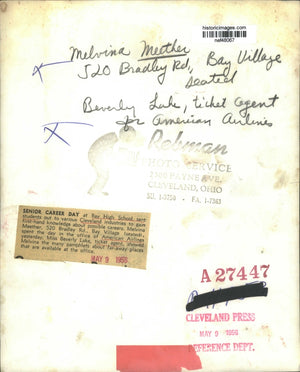 historicimages.com
Melvina Meether
520 Bradley Rd, Bay Village
seated
Beverly Luke, ticket agent
for American Airlines
Rebman
PHOTO SERVICE
PAYNE AVE.
CLEVELAND, OHIO
SENIOR CAREER DAY at Bay High School sent
students out to various Cleveland industries to gain
first-hand knowledge about possible careers. Melvina
Meether, 520 Bradley Rd., Bay Village (seated),
spent the day in the office of American Airlines
yesterday. Miss Beverly Luke, ticket agent, showed
Melvina the many pamphlets about faraway places
that are available at the office.
MAY 9 1958
A 27447
CLEVELAND PRESS
MAY 9 1958
REFERENCE DEPT.